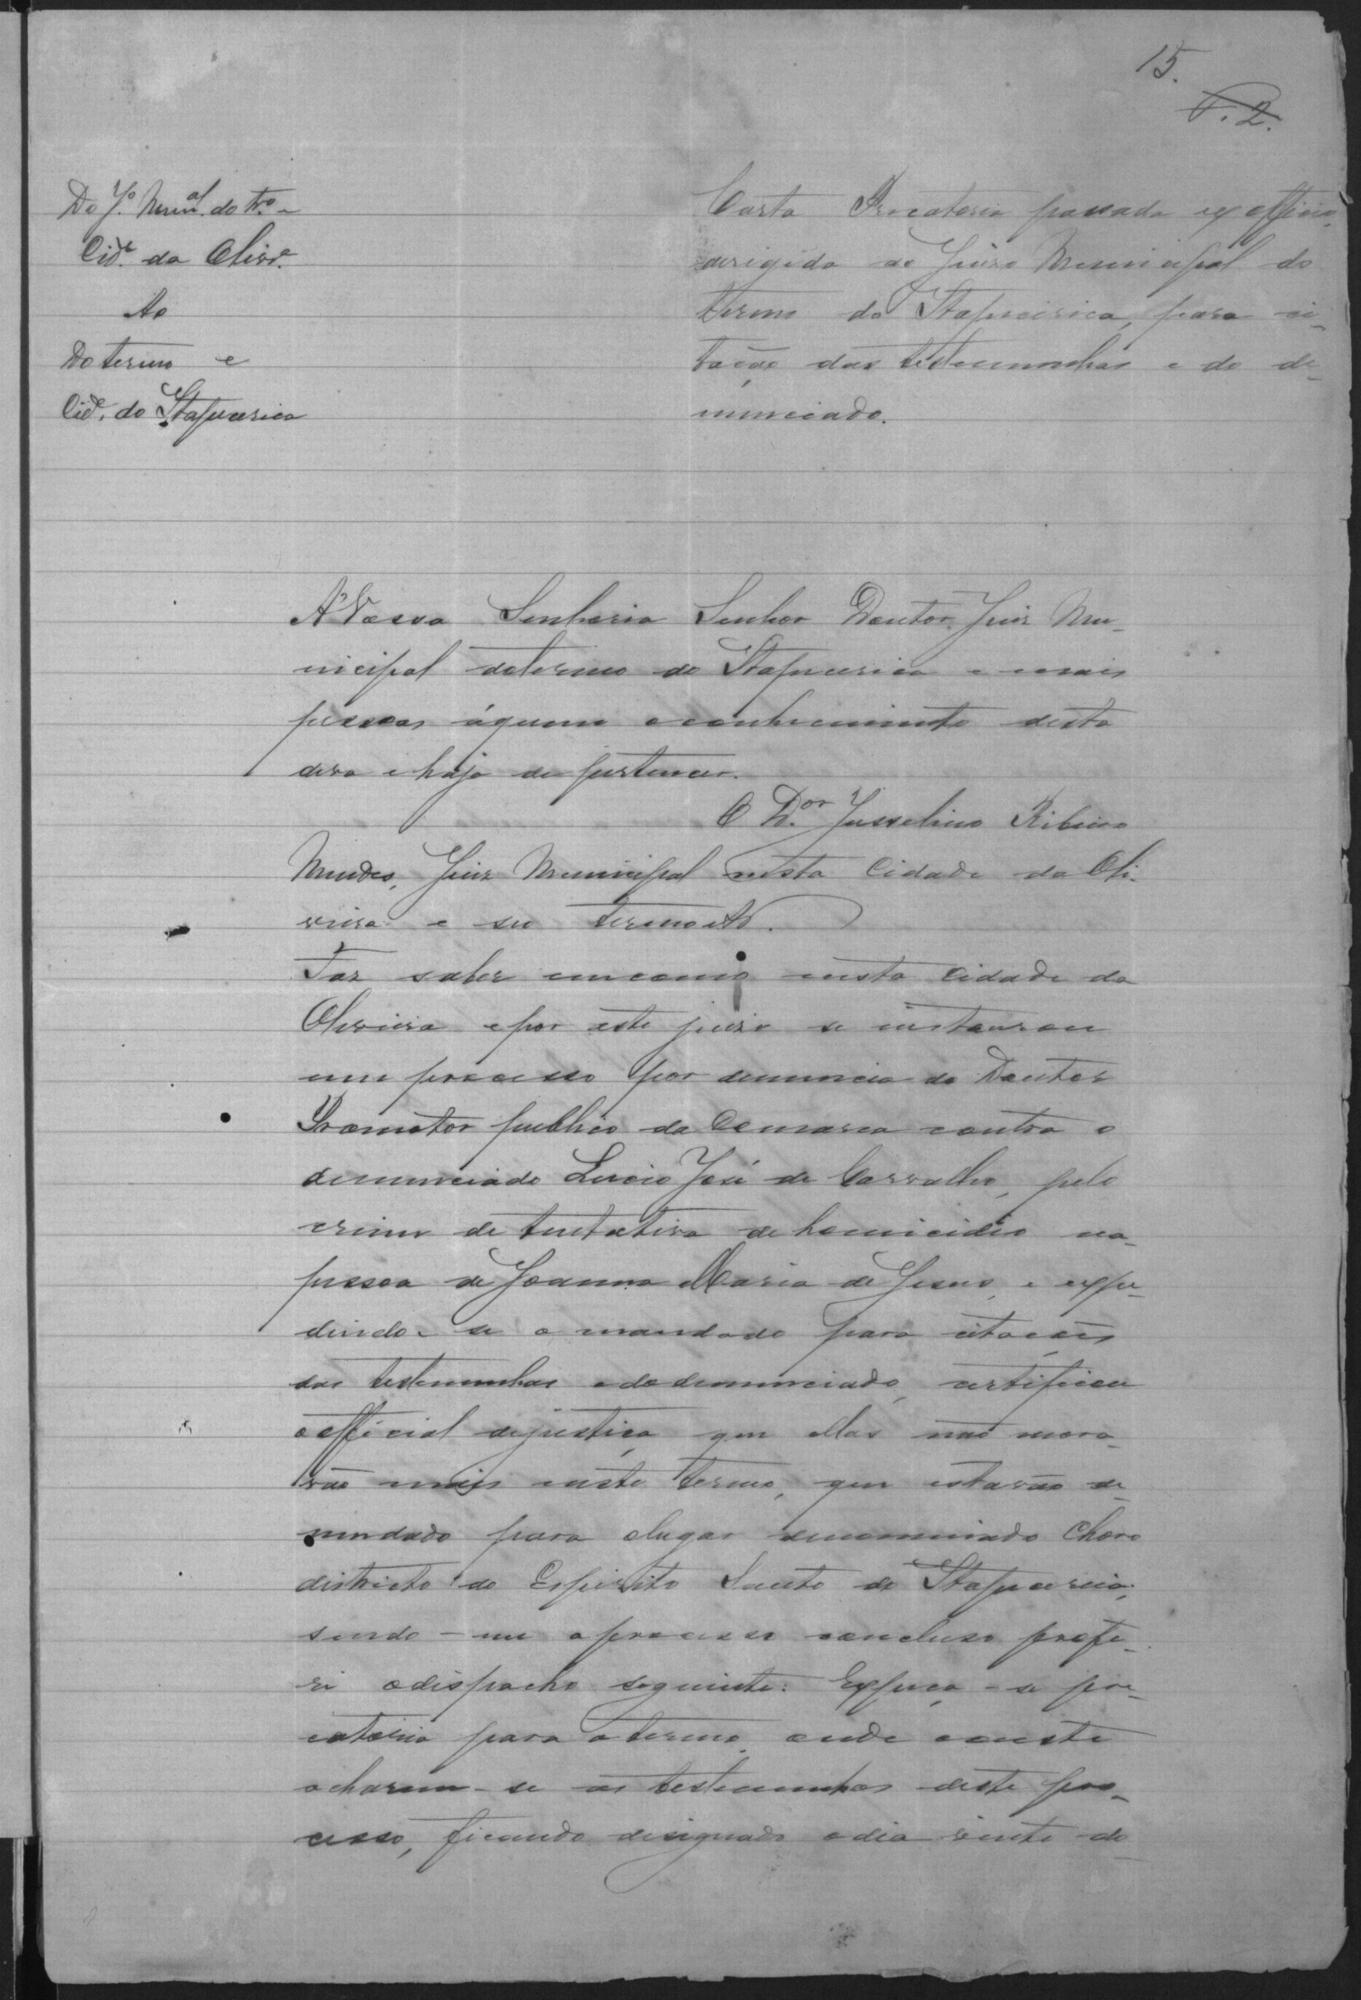 15.
P. 2.
Do J.º Munal. do tr.º e
Cid.e da Olivr.ª
Ao
Do termo e
Cid.e de Itapecerica
Carta Precatoria passada ex officio,
derigida ao Juizo Municipal do
termo de Itapecirica, para ci-
tação das testemunhas e do de-
nunciado.
A' Vossa Senhoria Senhor Doutor Juiz Mu-
nicipal do termo de Itapecerica e mais
pessoas á quem o conhecimento desta
deva e haja de pertencer.
O D.or Jusselino Ribeiro
Mendes, Juiz Municipal nesta Cidade da Oli-
veira e seu termo etc.
Faz saber em como nesta Cidade da
Oliveira e por este juizo se instaurou
um processo por denuncia do Doutor
Promotor publico da Comarca contra o
denunciado Lucio José de Carvalho, pelo
crime de tentativa de homicidio na
pessoa de Joanna Maria de Jesus, e expe-
dindo-se o mandado para citações
das testemunhas e do denunciado, certificou
o official de justiça que ellas não mora-
vão mais neste termo, que estavão se
mudado para o lugar denominado Choro
districto do Espirito Santo de Itapecerica,
sendo-me o processo concluso profe-
ri o dispacho seguinte: Expeça-se pre-
catoria para o termo, onde conste
acharem-se as testemunhas deste pro-
cesso, ficando designado o dia vinte do